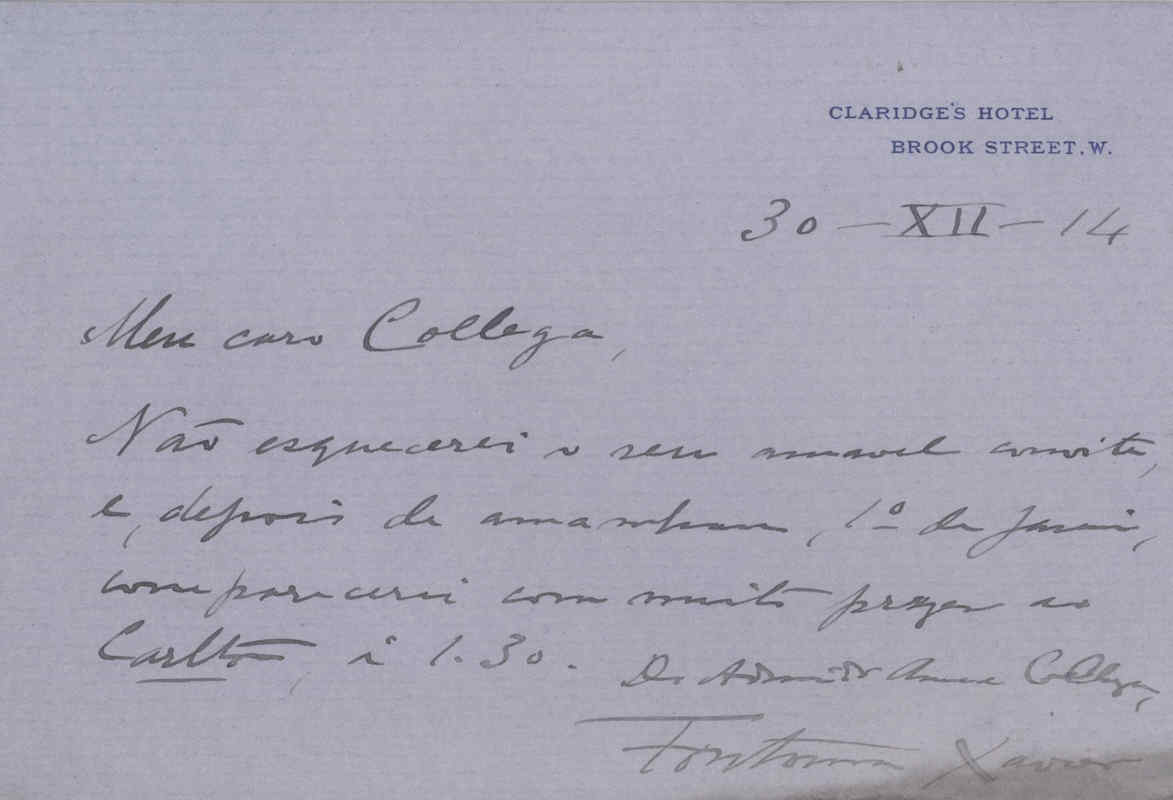 CLARIDGE'S HOTEL
BROOK STREET, W.
30 — XII — 14
Meu caro Collega,
Não esquecerei o seu amavel convite,
e, depois de amanhan, 1º de
comparecerei com muito prazer ao
Carlton, á 1.30.
Do Admirdr Collega,
Fontoura Xavier